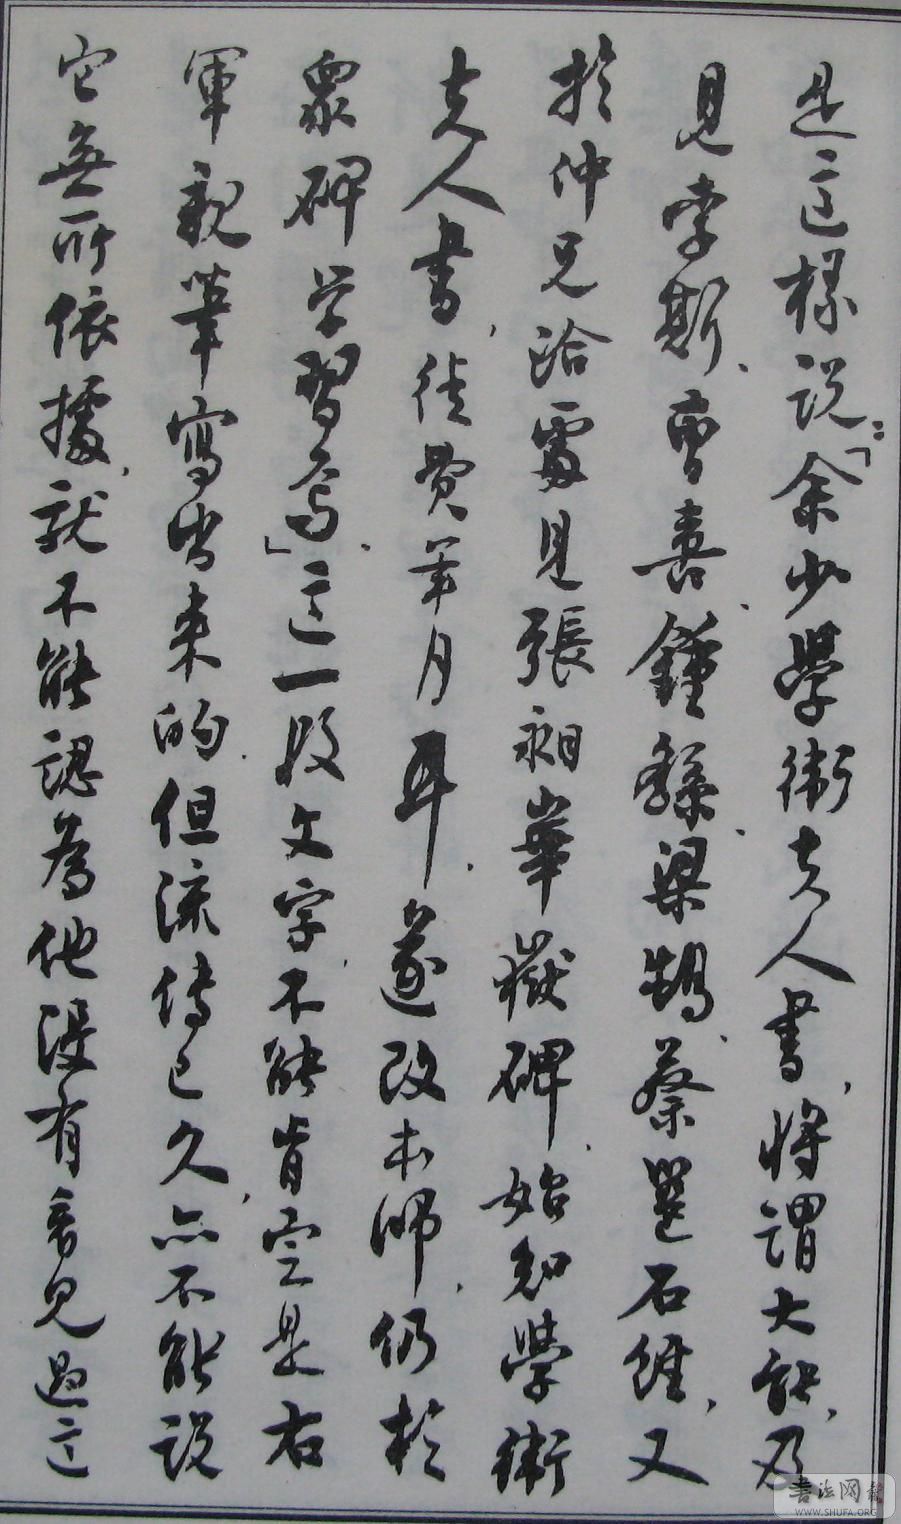 是這樣说：「余少學衛夫人書，將謂大能，及
見李斯、曹喜、鍾繇、梁鵠、蔡邕石经，又
於仲兄洽處見張昶華嶽碑，始知學衛
夫人書，徒费年月耳。遂改本师，仍於
眾碑学習焉。」這一段文字，不能肯定是右
軍親筆寫出来的，但流传已久，亦不能说
它無所依據，就不能認為他没有意見過這
書法网
WWW.SHUFA.ORG